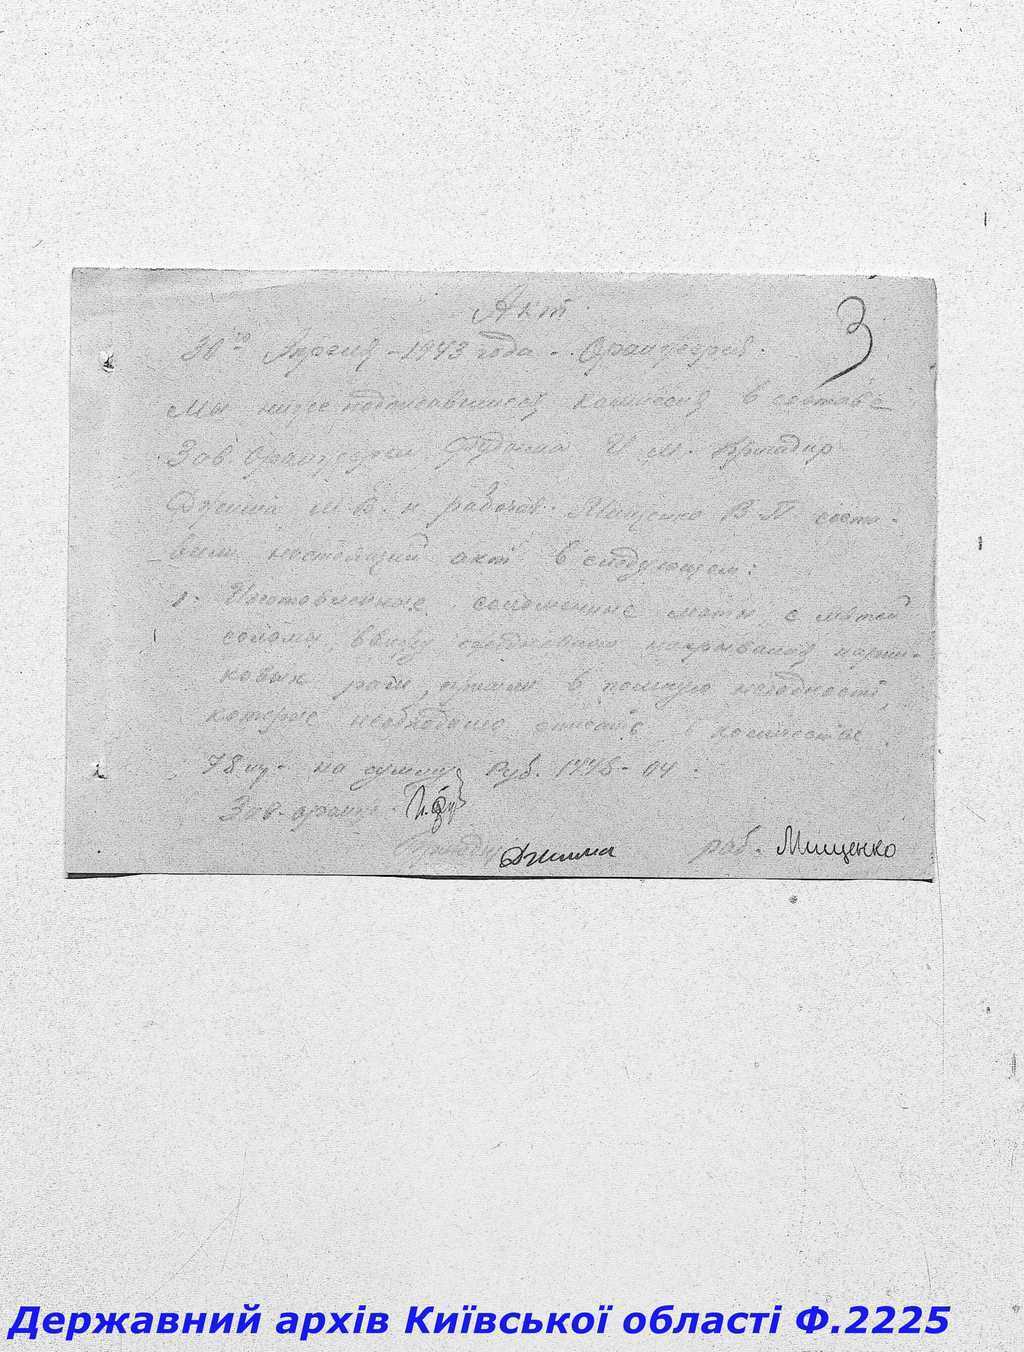 Акт.
3
30го Апреля - 1943 года. Оранжерея.
Мы ниже подписавшиеся комиссия в составе
Зав. Оранжереи И М. Бригадир
Джима М. В. и рабочей Мищенко В. П. соста-
вили настоящий акт в следующем:
1. соломенные маты с
соломы, ввиду накрывания парни-
ковых рам, пришли в полную негодность,
которые необходимо списать в количестве
78 шт. на сумму Руб. 04.
Зав. оранж.
Бригадир Джима раб. Мищенко
Державний архів Київської області Ф.2225